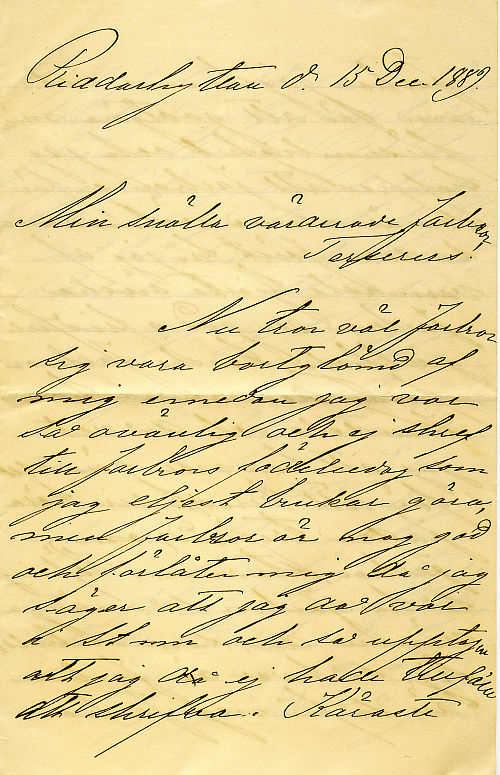 Riddarhyttan d. 15 Dec. 1889.
Min snälla värderade Farbror
Nu tror väl Farbror
sig vara bortglömd af
mig emedan jag var
så ovänlig och ej skref
till Farbrors födelsedag som
jag eljest brukar göra,
men Farbror är nog god
och förlåter mig då jag
säger att jag då var
i St mm och så upptagen
att jag då ej hade tillfälle
att skrifva. Käraste